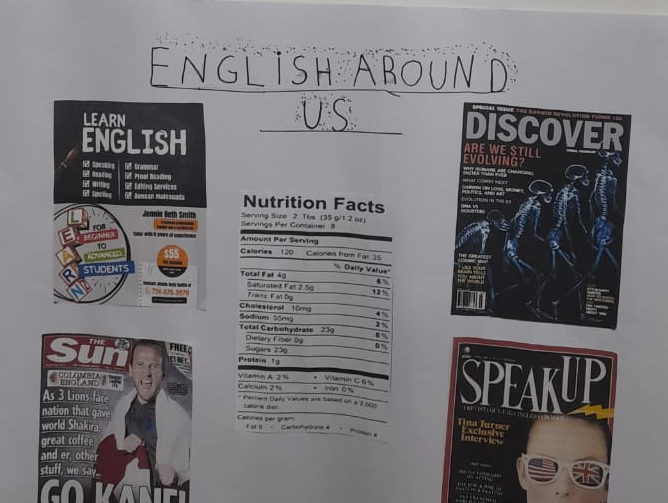 ENGLISH AROUND
US
LEARN
ENGLISH
Speaking
Reading
Writing
Spelling
Grammar
Proof Reading
Editing Services
Aenean malesuada
LEARN
FOR
BEGINNER
TO
ADVANCED
STUDENTS
Jennie Beth Smith
$55
Nutrition Facts
Serving Size 2 Tbs (35 g/1.2 oz)
Servings Per Container 8
Amount Per Serving
Calories 120 Calories from Fat 35
% Daily Value*
Total Fat 4g 6%
Saturated Fat 2.5g 12%
Trans Fat 0g
Cholesterol 10mg 4%
Sodium 55mg 2%
Total Carbohydrate 23g 8%
Dietary Fiber 0g 0%
Sugars 23g
Protein 1g
Vitamin A 2% • Vitamin C 0%
Calcium 2% • Iron 0%
* Percent Daily Values are based on a 2,000
calorie diet.
Calories per gram:
Fat 9 • Carbohydrate 4 • Protein 4
SPECIAL ISSUE THE DARWIN REVOLUTION TURNS 150
DISCOVER
ARE WE STILL
EVOLVING?
WHY HUMANS ARE CHANGING
FASTER THAN EVER
WHAT COMES NEXT
DARWIN ON LOVE, MONEY,
POLITICS, AND ART
DNA VS
DOUBTERS
THE GREATEST
COSMIC MAP
THE
Sun
FREE
COLOMBIA
ENGLAND
As 3 Lions face
nation that gave
world Shakira,
great coffee
and er, other
stuff, we say..
GO KANE!
SPEAK UP
Tina Turner
Exclusive
Interview